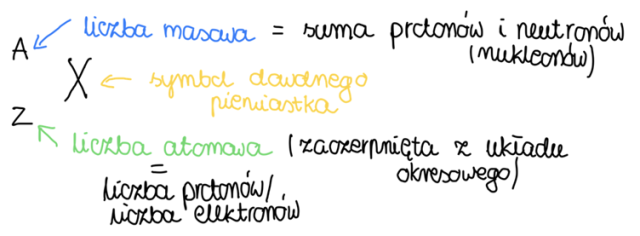 A liczba masowa = suma protonów i neutronów
(nukleonów)
X symbol dowolnego
pierwiastka
Z liczba atomowa (zaczerpnięta z układu
= okresowego)
liczba protonów/
liczba elektronów